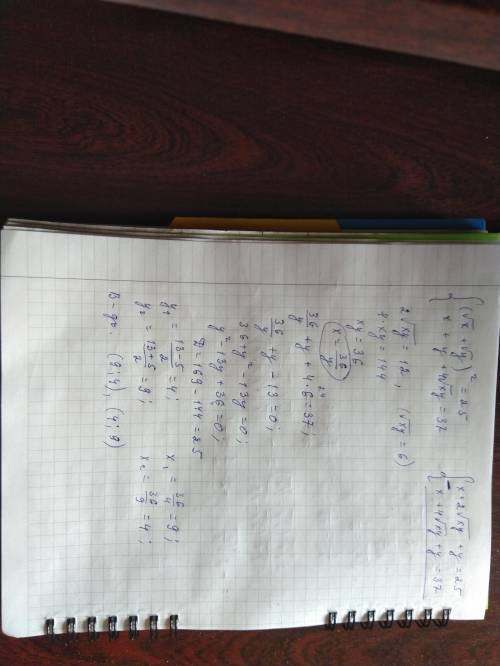 { (√x + √y)² = 25
x + y + 4√xy = 37
{ x + 2√xy + y = 25
x + 4√xy + y = 37
2√xy = 12, (√xy = 6)
4xy = 144
xy = 36
x = 36/y
36/y + y + 4·6 = 37;
24
36/y + y - 13 = 0;
36 + y² - 13y = 0;
y² - 13y + 36 = 0;
D = 169 - 144 = 25
y₁ = (13-5)/2 = 4; x₁ = 36/4 = 9;
y₂ = (13+5)/2 = 9; x₂ = 36/9 = 4;
В-дь: (9; 4), (4; 9)